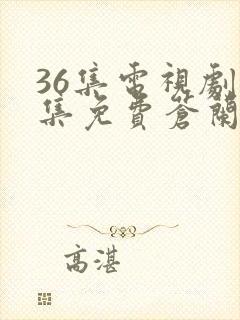 36集電視劇
集免費蒼蘭
高湛